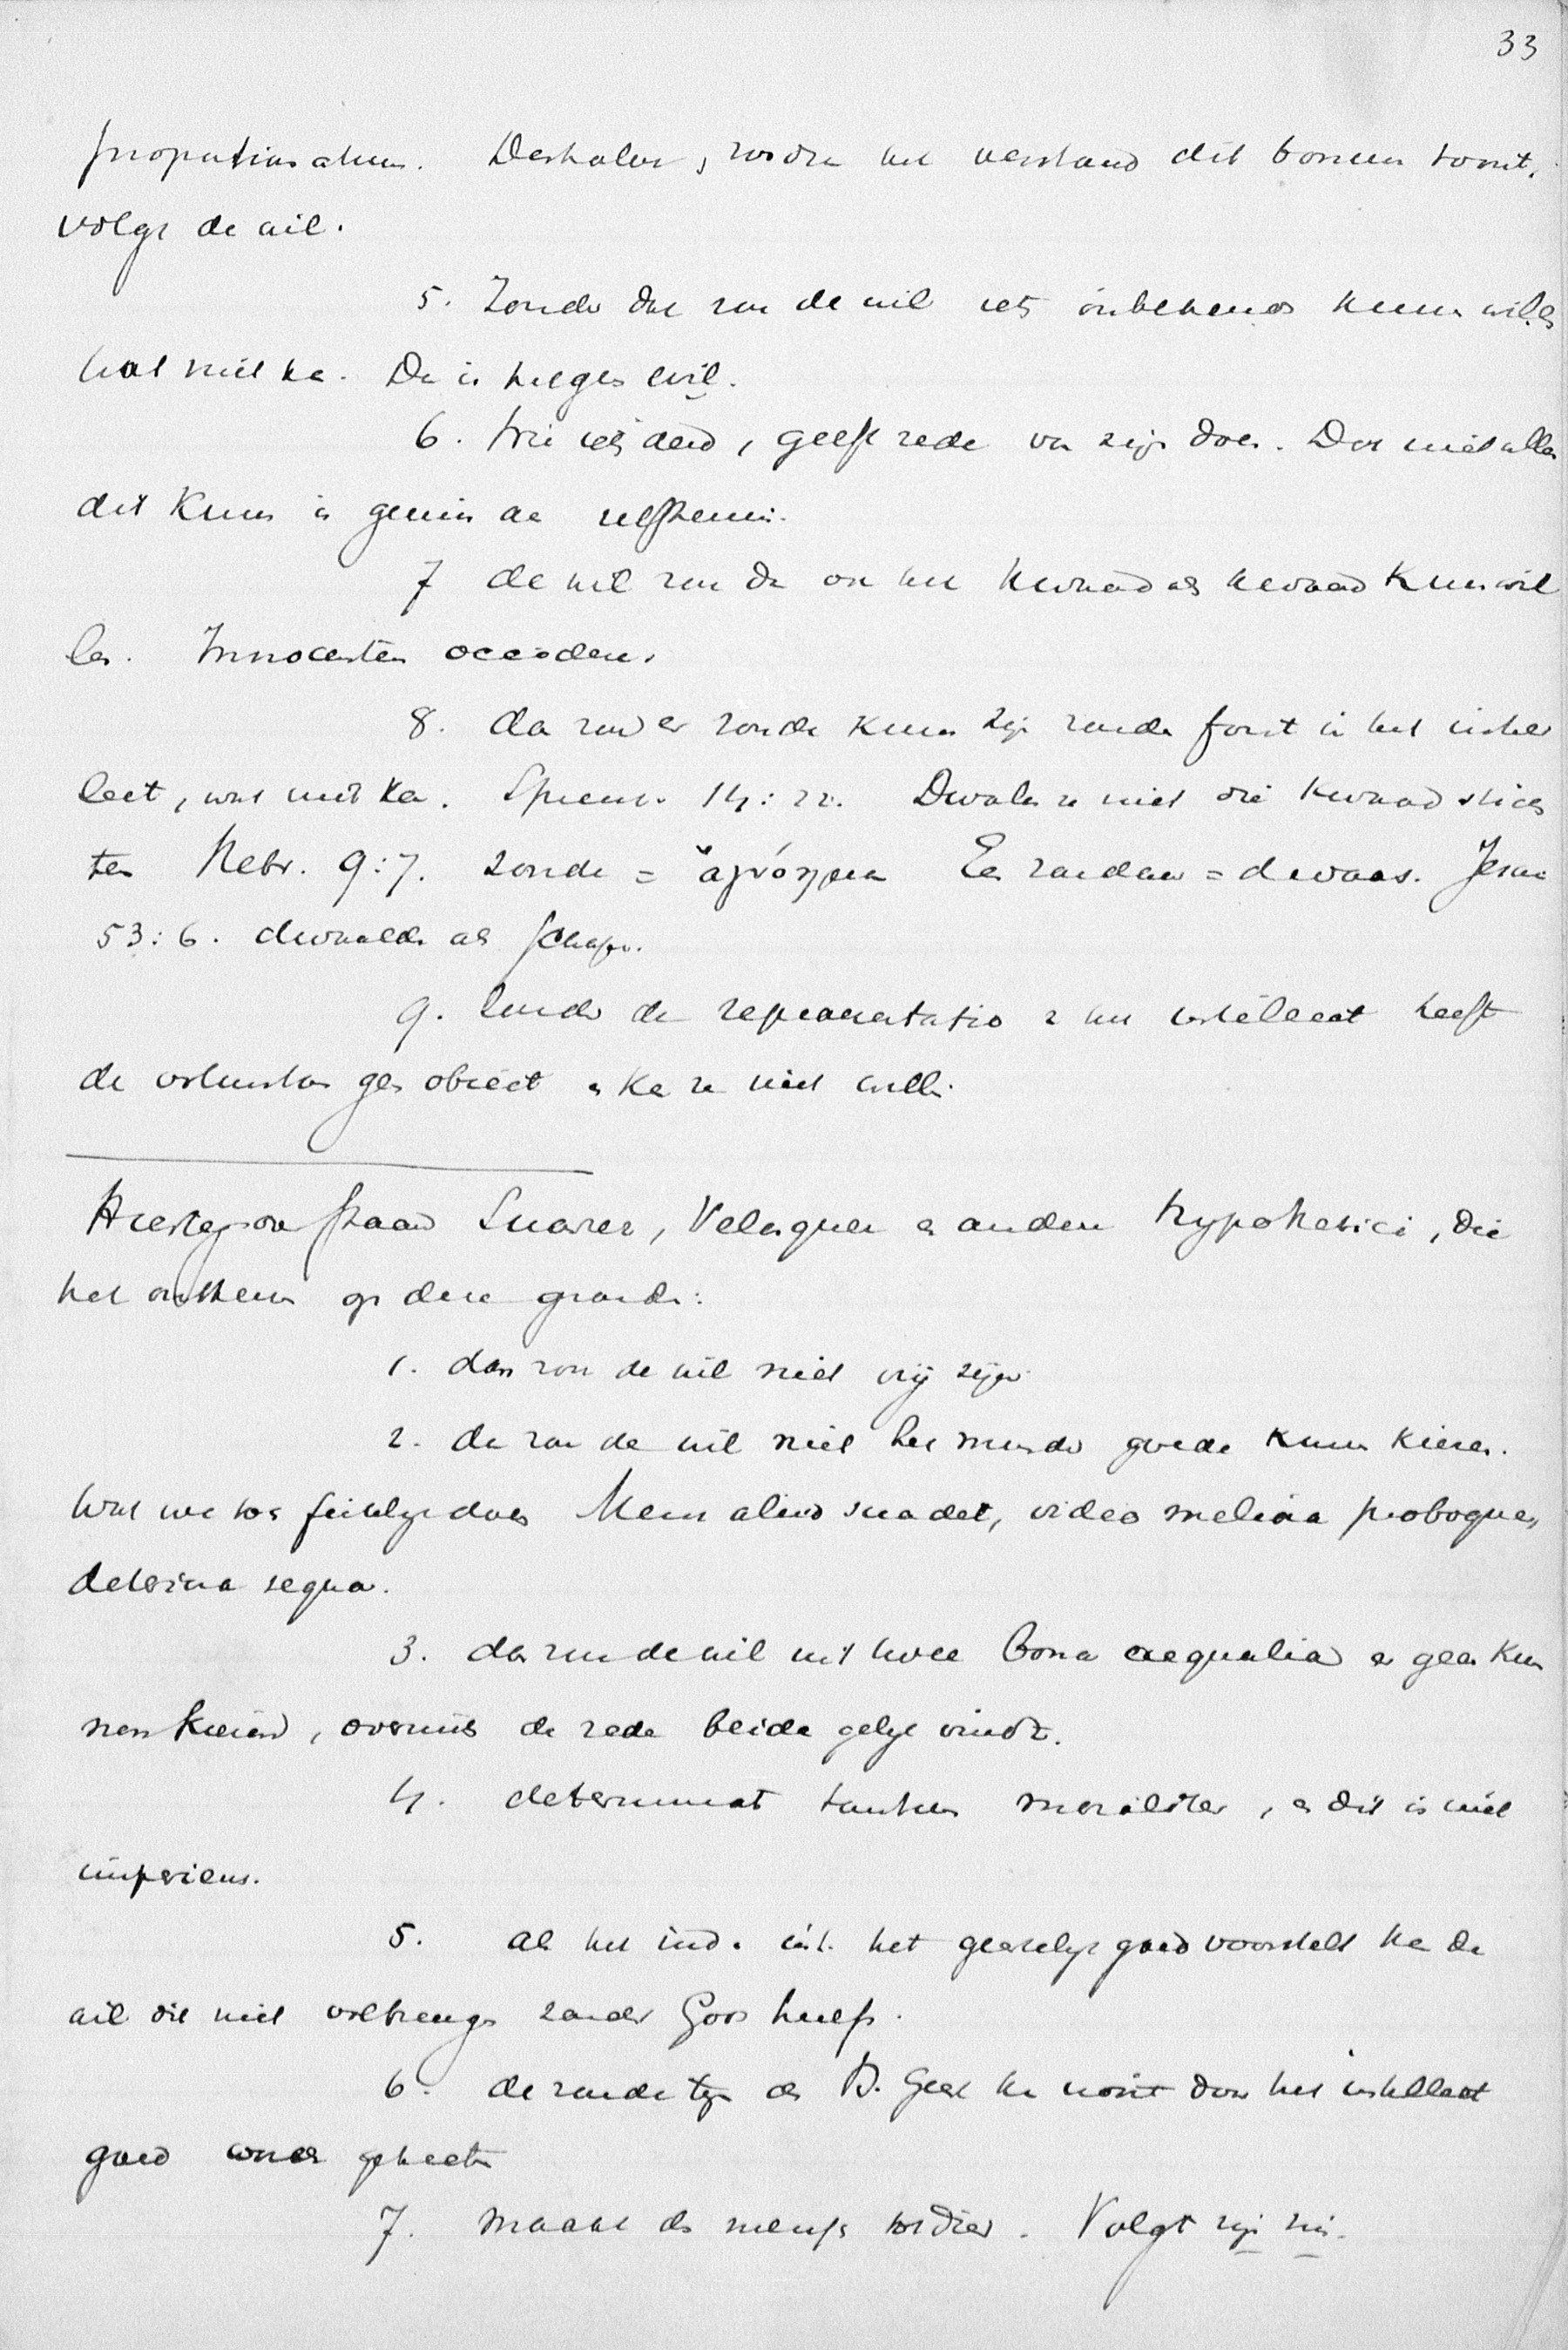 33
propensiorem. Derhalve, zoodra het verstand dit bonum toont,
volgt de wil.
5. Zonder dat zou de wil iets onbekends kunnen willen
wat niet kan. Dan is het geen wil.
6. Wie iets deed, geeft rede van zijn doen. Dus niet alleen
dit kunnen is gemis aan zelfkennis.
7 de wil zou dan ook het kwaad als kwaad kunnen wil
len. Innocentem occidere.
8. dan zou er zonde kunnen zijn zonder fout in het intel
lect, wat niet kan. Spreuk. 14:22. Dwalen ze niet die kwaad stich
ten Hebr. 9:7. zonde = ἀγνόημα Een zondaar = dwaas. Jesaia
53:6. dwaalden als schapen.
9. Zonder de repraesentatio van het intellect heeft
de voluntas geen object en kan ze niet willen.
Hiertegenover staan Suarez, Velasquez en andere hypothetici, die
het ontkennen op deze gronden:
1. dan zou de wil niet vrij zijn
2. dan zou de wil niet het minder goede kunnen kiezen.
Wat we toch feitelijk doen Mens aliud suadet, video meliora proboque,
deteriora sequor.
3. dan zou de wil uit twee bona aequalia er geen kun
nen kiezen, overmits de rede beide gelijk vindt.
4. determinat tantum moraliter, en dit is niet
imperiens.
5. als het iud. int. het geestelijk goed voorstelt kan de
wil dit niet volbrengen zonder Gods hulp.
6. de zonde tegen den H. Geest kan nooit door het intellect
goed worden geheeten
7. maakt den mensch tot dier. Volgt zijn zin.